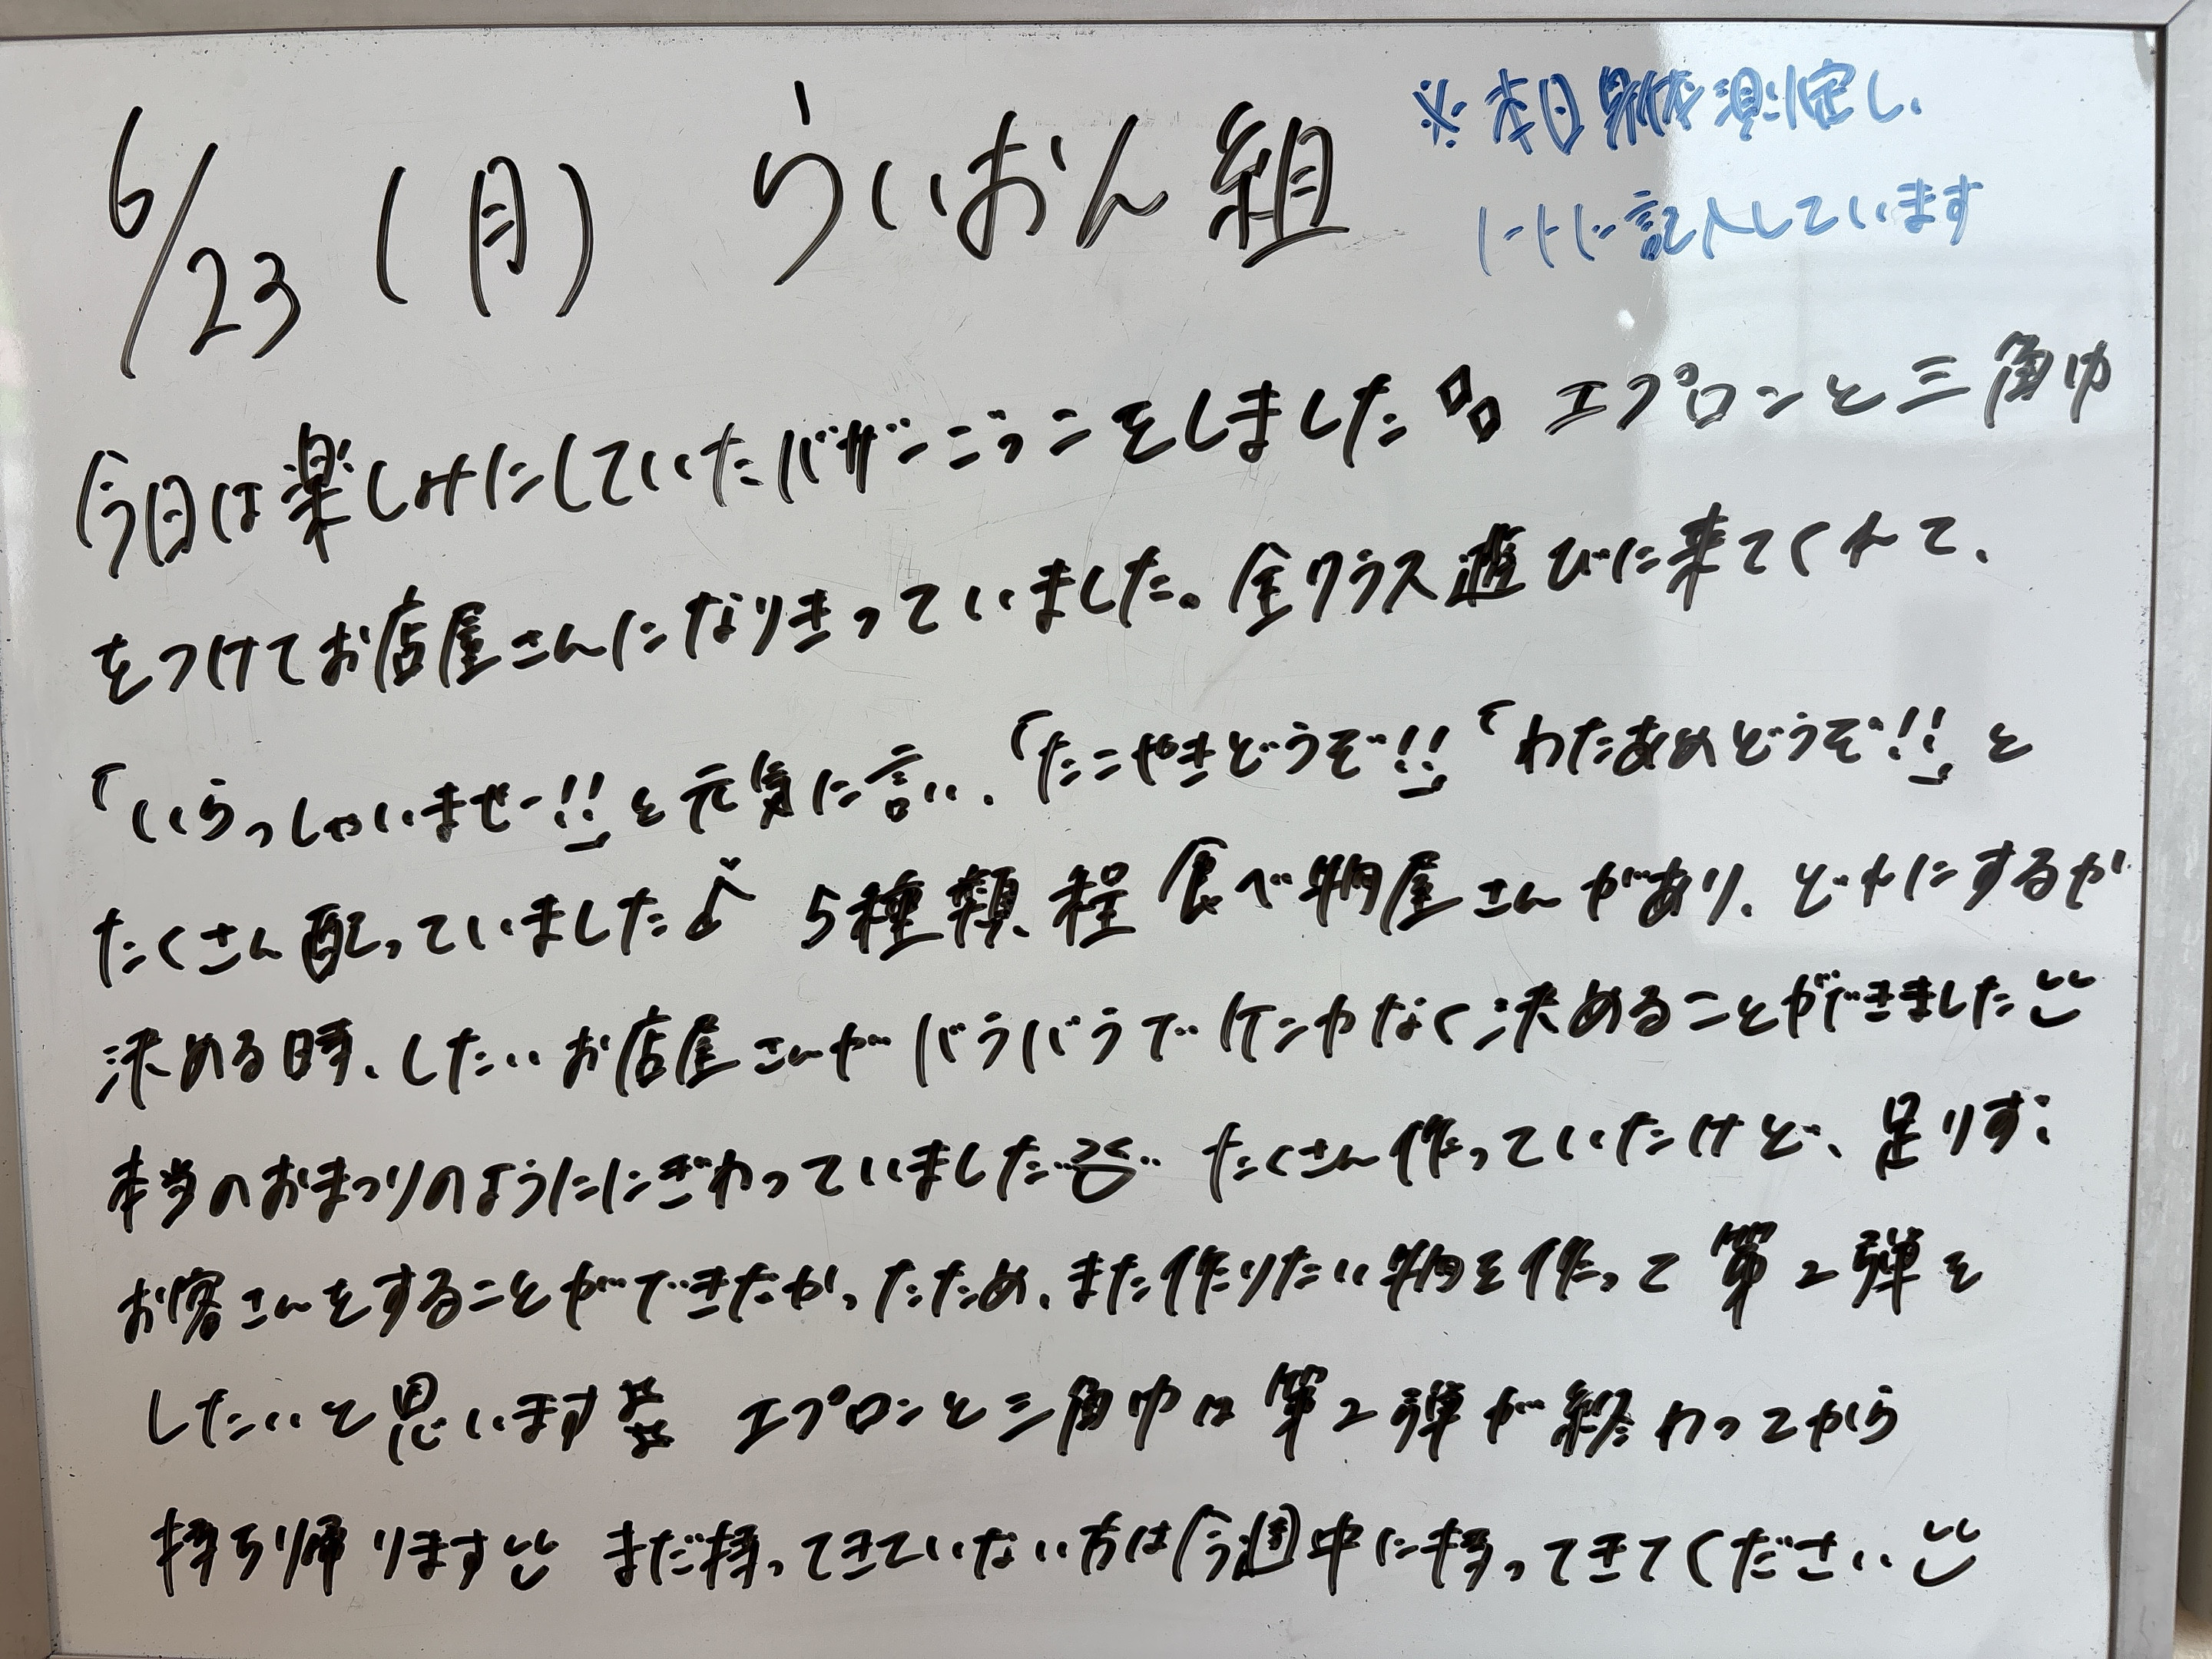 6/23 (月) らいおん組
※本日身体測定し、
ノートに記入しています
今日は楽しみにしていたバザーごっこをしました エプロンと三角巾
をつけてお店屋さんになりきっていました。全クラス遊びに来てくれて、
「いらっしゃいませー!!」と元気に言い、「たこやきどうぞ!!」「わたあめどうぞ!!」と
たくさん配っていました♪ 5種類程食べ物屋さんがあり、どれにするか
決める時、したいお店屋さんがバラバラでケンカなく決めることができました
本当のおまつりのようににぎわっていました たくさん作っていたけど、足りず
お客さんをすることができたかったため、また作りたい物を作って第2弾を
したいと思います エプロンと三角巾は第2弾が終わってから
持ち帰ります まだ持ってきていない方は今週中に持ってきてください